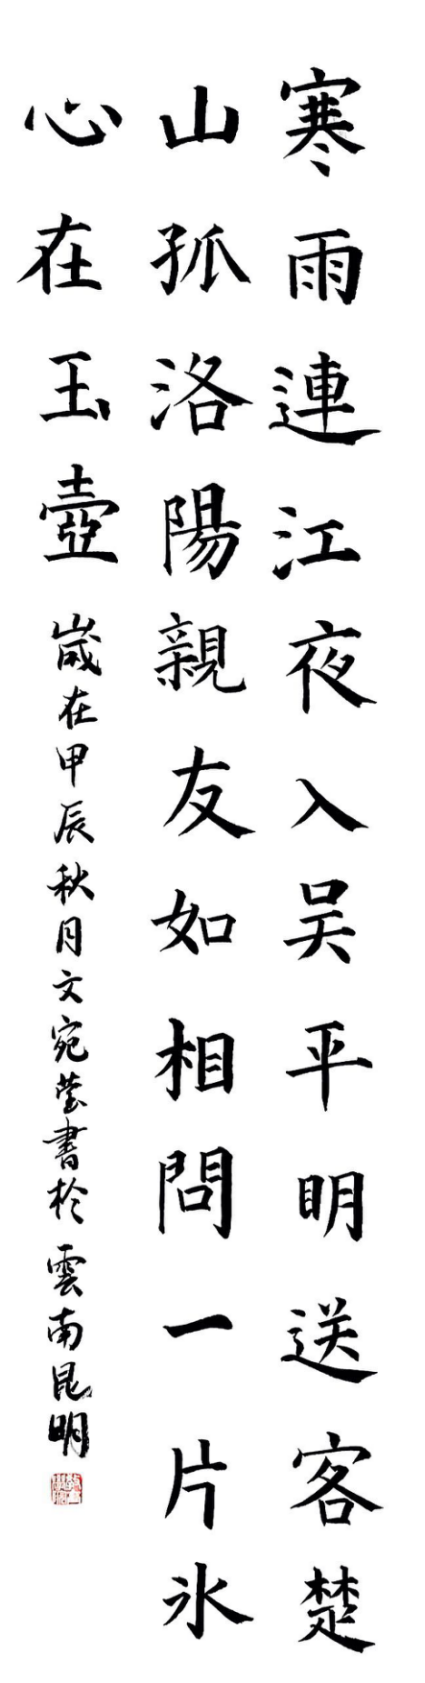 寒雨連江夜入吴平明送客楚
山孤洛陽親友如相問一片氷
心在玉壺
歲在甲辰秋月文宛莹書於雲南昆明